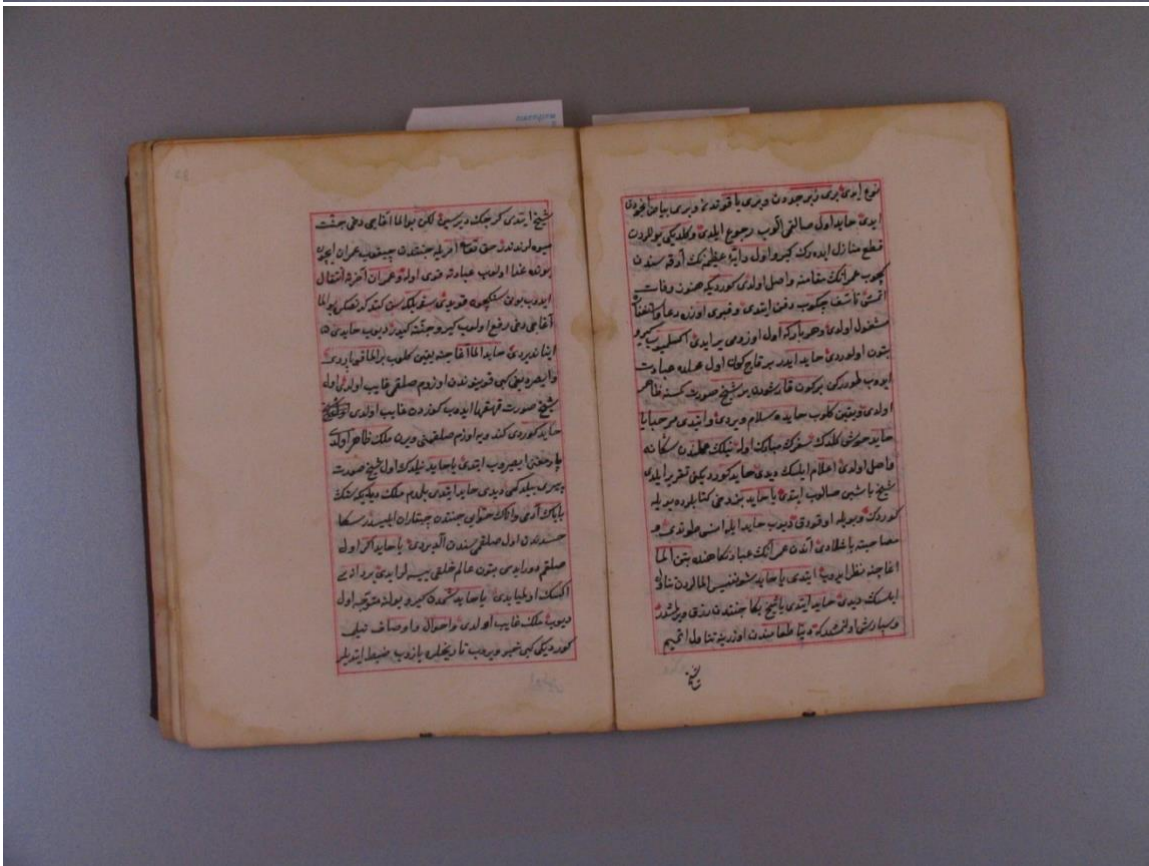 نوع ایدی بری زبرجددن وبری یاقوتدن وبری بیاض انجودن
ایدی حاید اول صالقمی آلوب رجوع ایلدی وکلدیکی یوللردن
قطع منازل ایده رک کیرو اول دابه عظیمه نک آرقه سندن
کچوب عمرانک مقامنه واصل اولدی کوردیکه هنوز وفات
اتمش تأسف چکوب دفن ایتدی وقبری اوزره دعا
مشغول اولدی وهر بارکه اول اوزومی یر ایدی اکسلمیوب کیرو
بتون اولوردی حاید ایدر بر قاچ کون اول محلده عبادت
ایدوب طوررکن بر کون قارشودن بر شیخ صورت کمسنه ظاهر
اولدی ویقین کلوب حایده سلام ویردی وایتدی مرحبا یا
حاید خوش کلدک سفرک مبارک اوله نیلک محلندن سکا نه
واصل اولدی اعلام ایلسک دیدی حاید کوردیکنی تقریر ایلدی
شیخ باشین صالوب ایتدی یا حاید بز دخی کتابلرده بویله
کوردک وبویله اوقودق دیوب حاید ایله انسی طوتدی و
مصاحبته باشلادی آندن عمرانک عبادتکاهنده بتن الما
اغاجنه نظر ایدوب ایتدی یا حاید شو نفیس المالردن تناول
ایلسک دیدی حاید ایتدی یا شیخ بکا جنتدن رزق ویرلمشدر
وسپارش اولنمشدرکه دنیا طعامندن اوزرینه تناول اتمیم
شیخ
شیخ ایتدی کرچک دیرسین لکن بو الما اغاجی دخی جنت
میوه لرندندر حق تعالی امریله جنتدن چیقوب عمران ایچون
بونده غدا اولوب عبادته قوی اوله وعمران آخرته انتقال
ایدوب بونی سنکچون قویدی سن کتدکدنصکره بو الما
آغاجی دخی رفع اولوب کیرو جنته کیدر دیوب حایدی
ایناندیردی حاید الما آغاجنه یقین کلوب بر الما قوپاردی
وایصردیغی کبی قوینوندن اوزوم صالقمی غایب اولدی اول
شیخ صورت قهقهها ایدوب کوزدن غایب اولدی
حاید کوردی کندویه اوزوم صالقمنی ویرن ملک ظاهر اولدی
پارمغنی ایصیروب ایتدی یا حاید نیلدک اول شیخ صورت
پیری بیلدکمی دیدی حاید ایتدی بلمدم ملک دیدیکه سنک
باباک آدمی واناک حوایی جنتدن چیقاران ابلیسدر سکا
حسدندن اول صلقمی سندن آلدیردی یا حاید اکر اول
صلقم دورایدی بتون عالم خلقی یسه لر ایدی بر دانه سی
اکسک اولمیایدی یا حاید شمدن کیرو یولکه متوجه اول
دیوب ملک غایب اولدی واحوال واوصاف نیلی
کوردیکی کبی تعبیر ویروب تاریخلره یازوب ضبط ایتدیلر